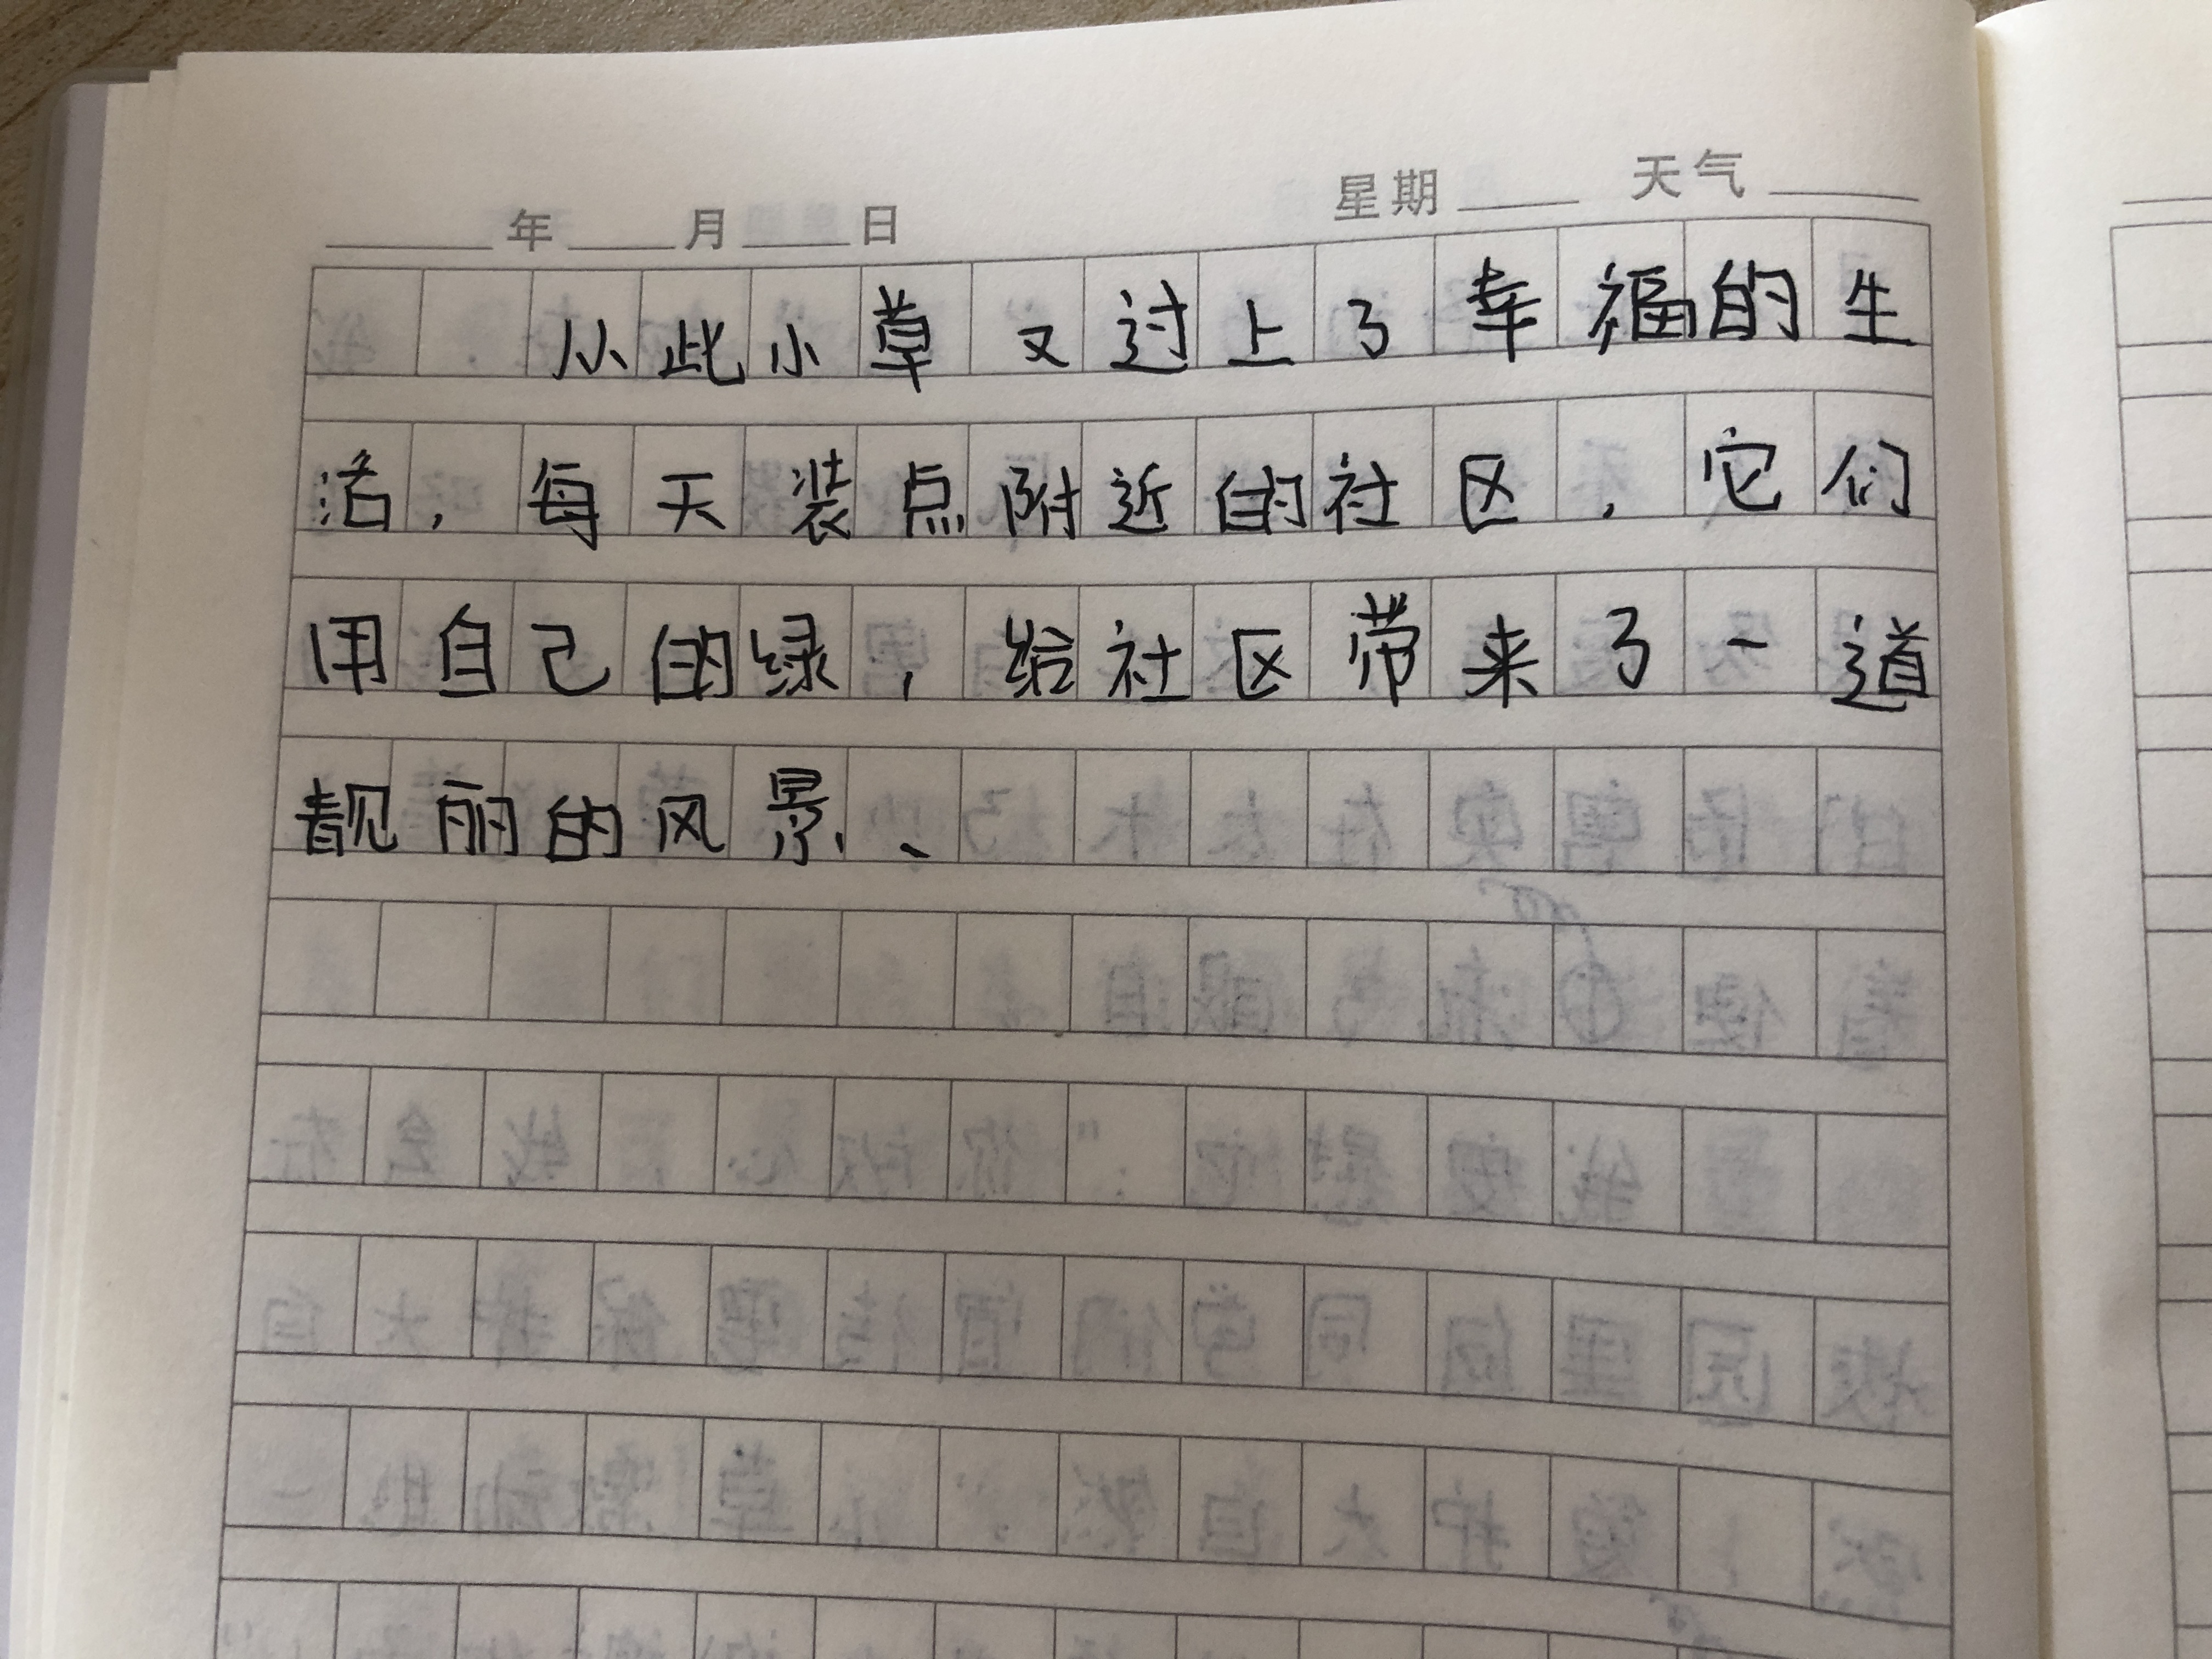 年 月 日 星期 天气
从此小草又过上了幸福的生
活，每天装点附近的社区，它们
用自己的绿，给社区带来了一道
靓丽的风景、